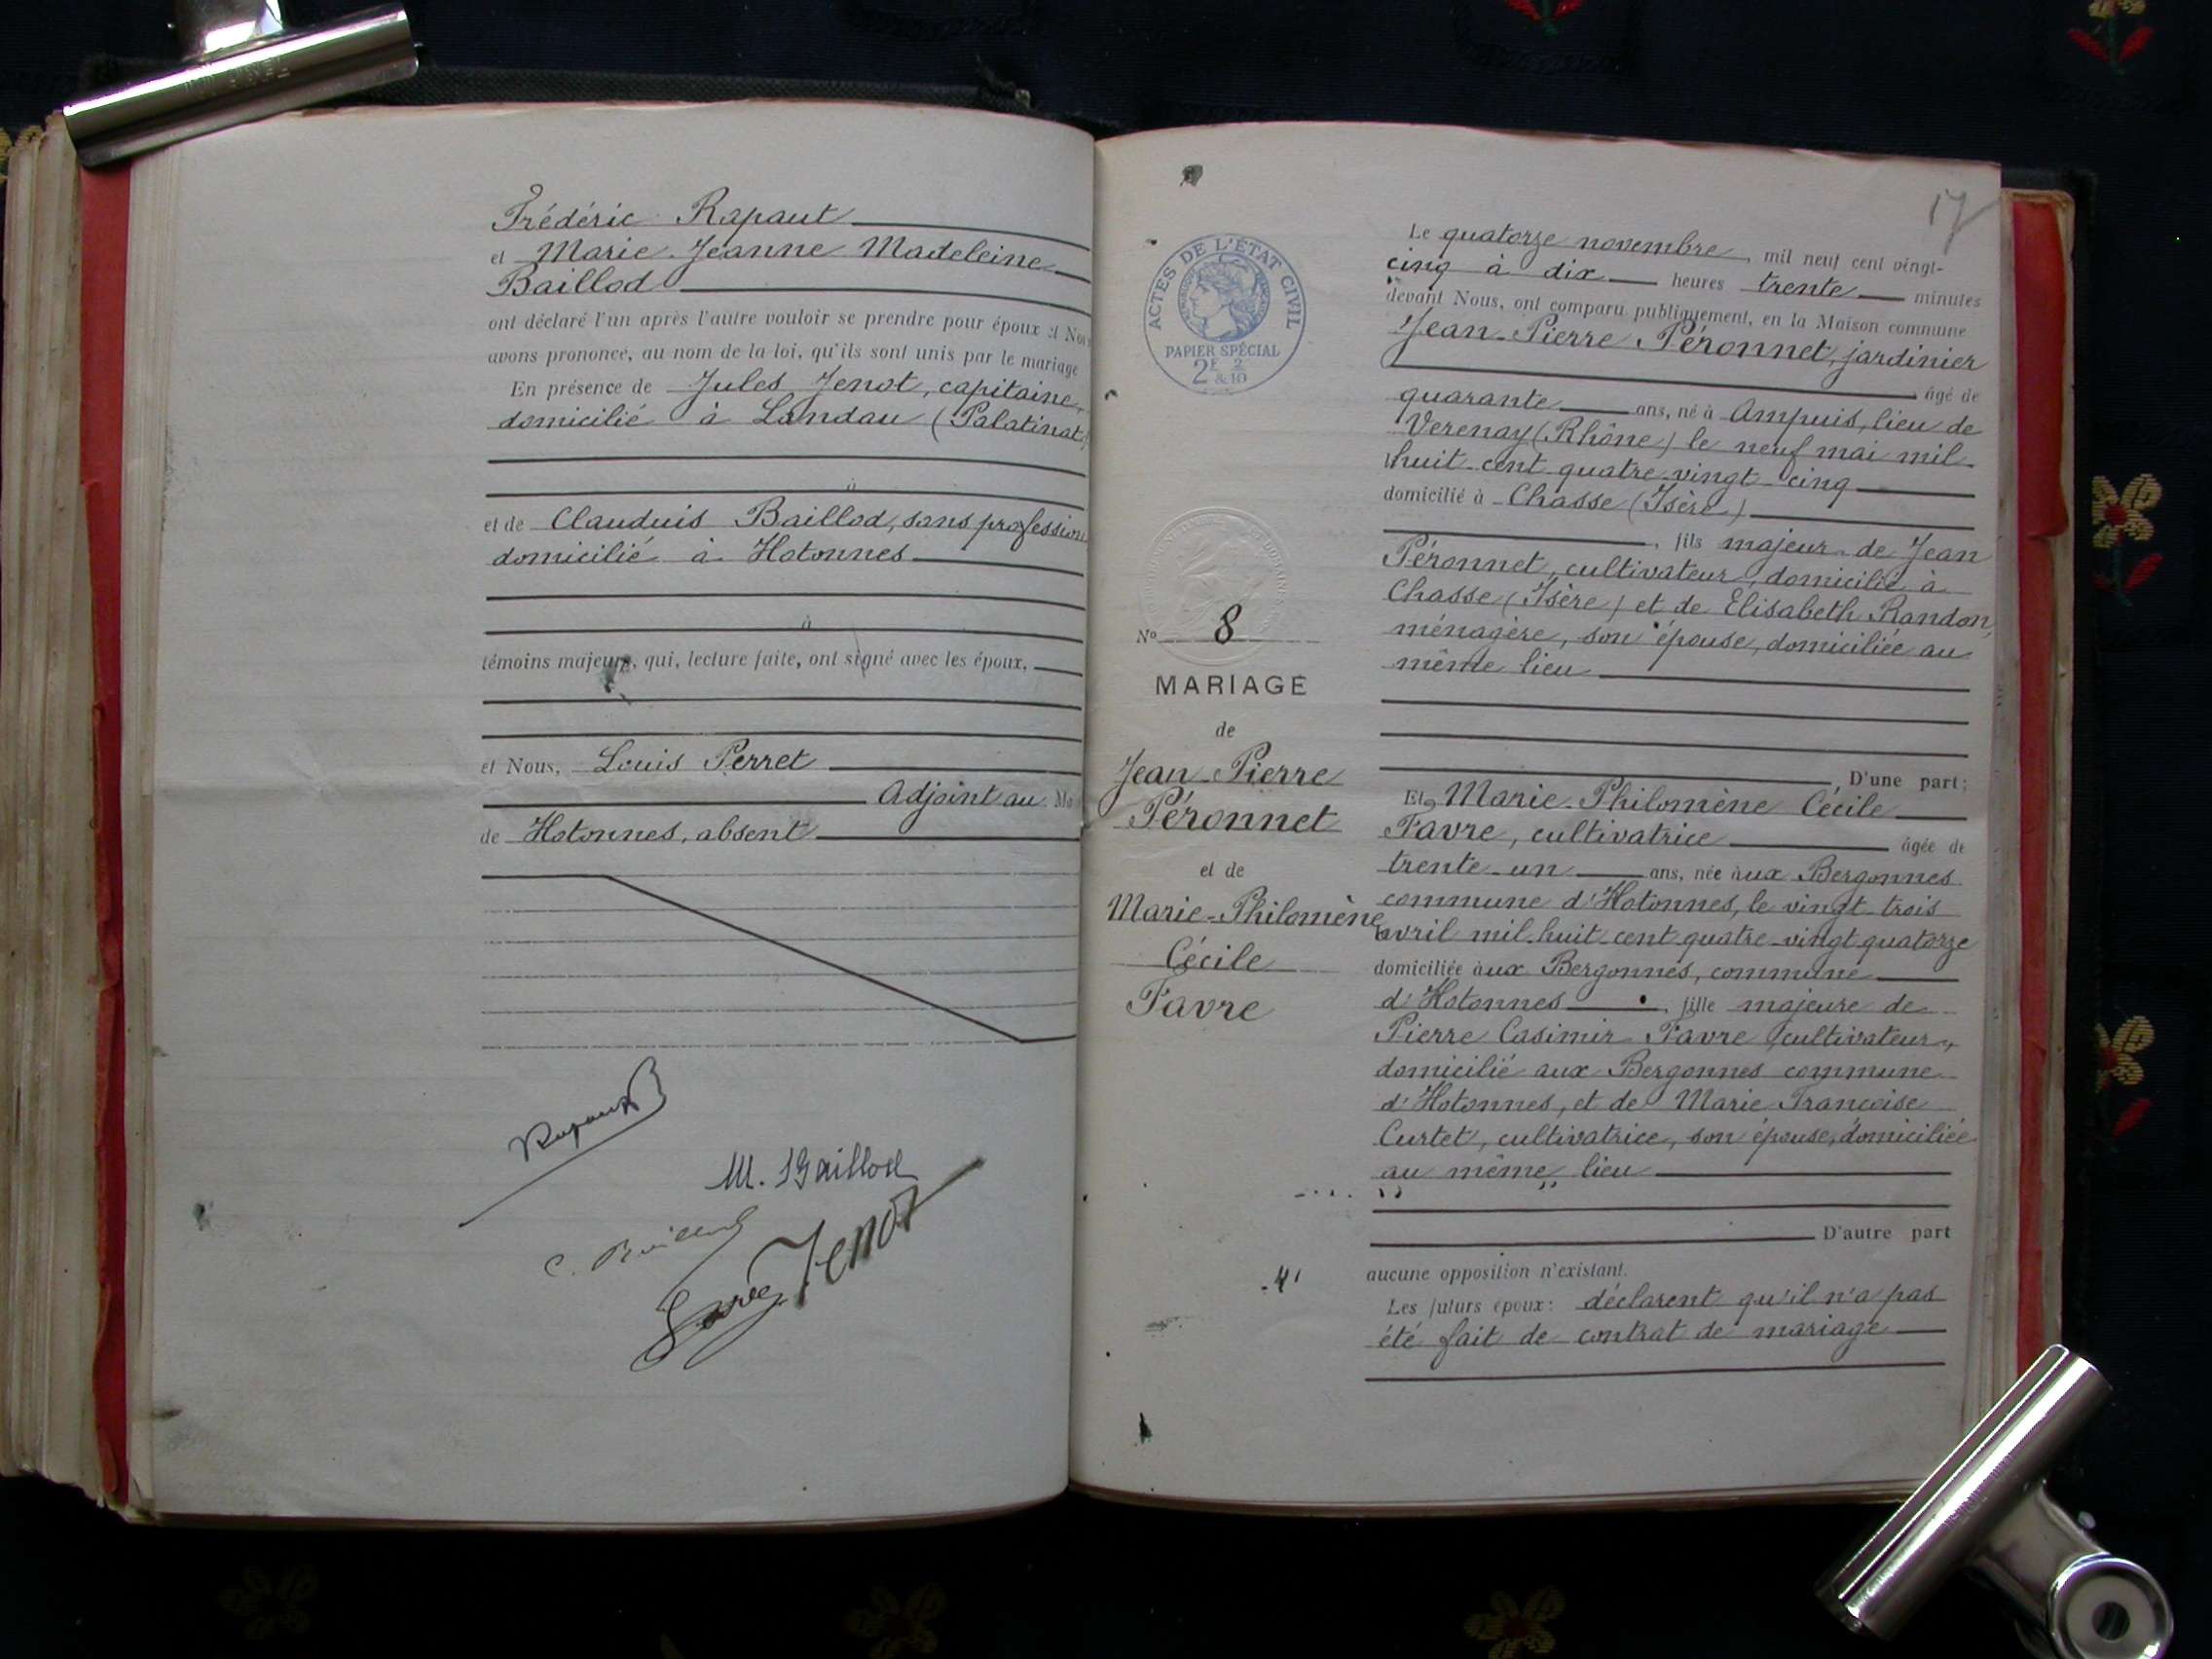 Frédéric Rapaut
et Marie Jeanne Madeleine
Baillod
ont déclaré l'un après l'autre vouloir se prendre pour époux et Nous
avons prononcé, au nom de la loi, qu'ils sont unis par le mariage
En présence de Jules Jenot, capitaine,
domicilié à Landau (Palatinat)
à
et de Claudius Baillod, sans profession
domicilié à Hotonnes
à
témoins majeurs, qui, lecture faite, ont signé avec les époux,
et Nous, Louis Perret
Adjoint au Ma
de Hotonnes, absent
Rapaut
M. Baillod
C. Baillod
Jenot
17
ACTES DE L'ÉTAT CIVIL
PAPIER SPÉCIAL
2F 2
&10
No 8
MARIAGE
de
Jean-Pierre
Péronnet
et de
Marie-Philomène
Cécile
Favre
Le quatorze novembre, mil neuf cent vingt-
cinq à dix heures trente minutes
devant Nous, ont comparu publiquement, en la Maison commune
Jean-Pierre Péronnet, jardinier
âgé de
quarante ans, né à Ampuis, lieu de
Verenay (Rhône) le neuf mai mil
huit cent quatre-vingt-cinq
domicilié à Chasse (Isère)
, fils majeur de Jean
Péronnet, cultivateur, domicilié à
Chasse (Isère) et de Elisabeth Randon,
ménagère, son épouse, domiciliée au
même lieu
D'une part;
Et Marie-Philomène Cécile
Favre, cultivatrice âgée de
trente-un ans, née aux Bergonnes
commune d'Hotonnes, le vingt-trois
avril mil-huit-cent quatre-vingt quatorze
domiciliée aux Bergonnes, commune
d'Hotonnes, fille majeure de
Pierre Casimir Favre cultivateur,
domicilié aux Bergonnes commune
d'Hotonnes, et de Marie Françoise
Curtet, cultivatrice, son épouse, domiciliée
au même lieu
D'autre part
aucune opposition n'existant.
Les futurs époux: déclarent qu'il n'a pas
été fait de contrat de mariage